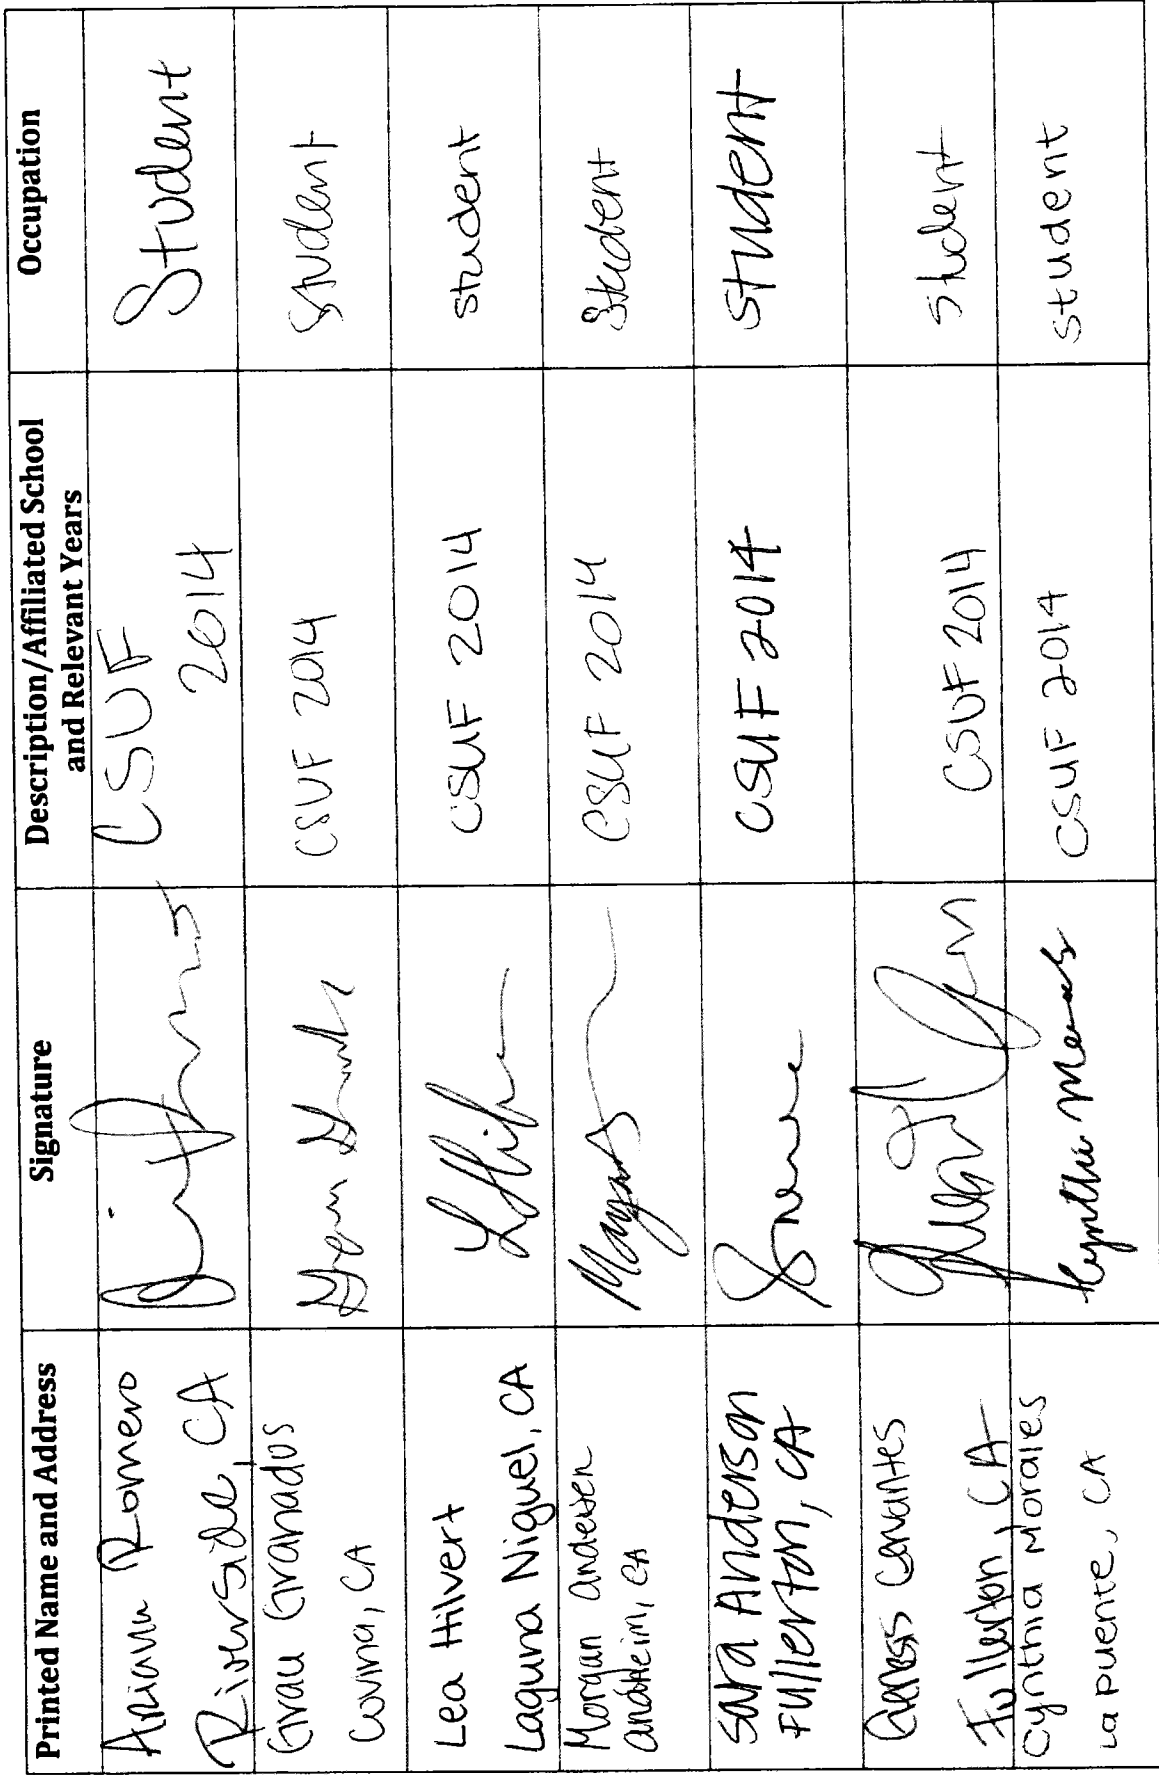 Printed Name and Address
Signature
Description/Affiliated School
and Relevant Years
Occupation
Romero
Riverside, CA
CSUF
2014
Student
Granados
Covina, CA
CSUF 2014
Student
Lea Hilvert
Laguna Niguel, CA
CSUF 2014
student
Morgan
CA
CSUF 2014
Student
Sara Anderson
Fullerton, CA
CSUF 2014
student
Cervantes
Fullerton, CA
CSUF 2014
Student
Cynthia Morales
La Puente, CA
Cynthia Morales
CSUF 2014
student